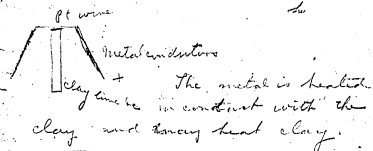 Pt wire
Metal conductors
+
clay lime &c
The metal is heated
in contact with the
clay and may heat clay.